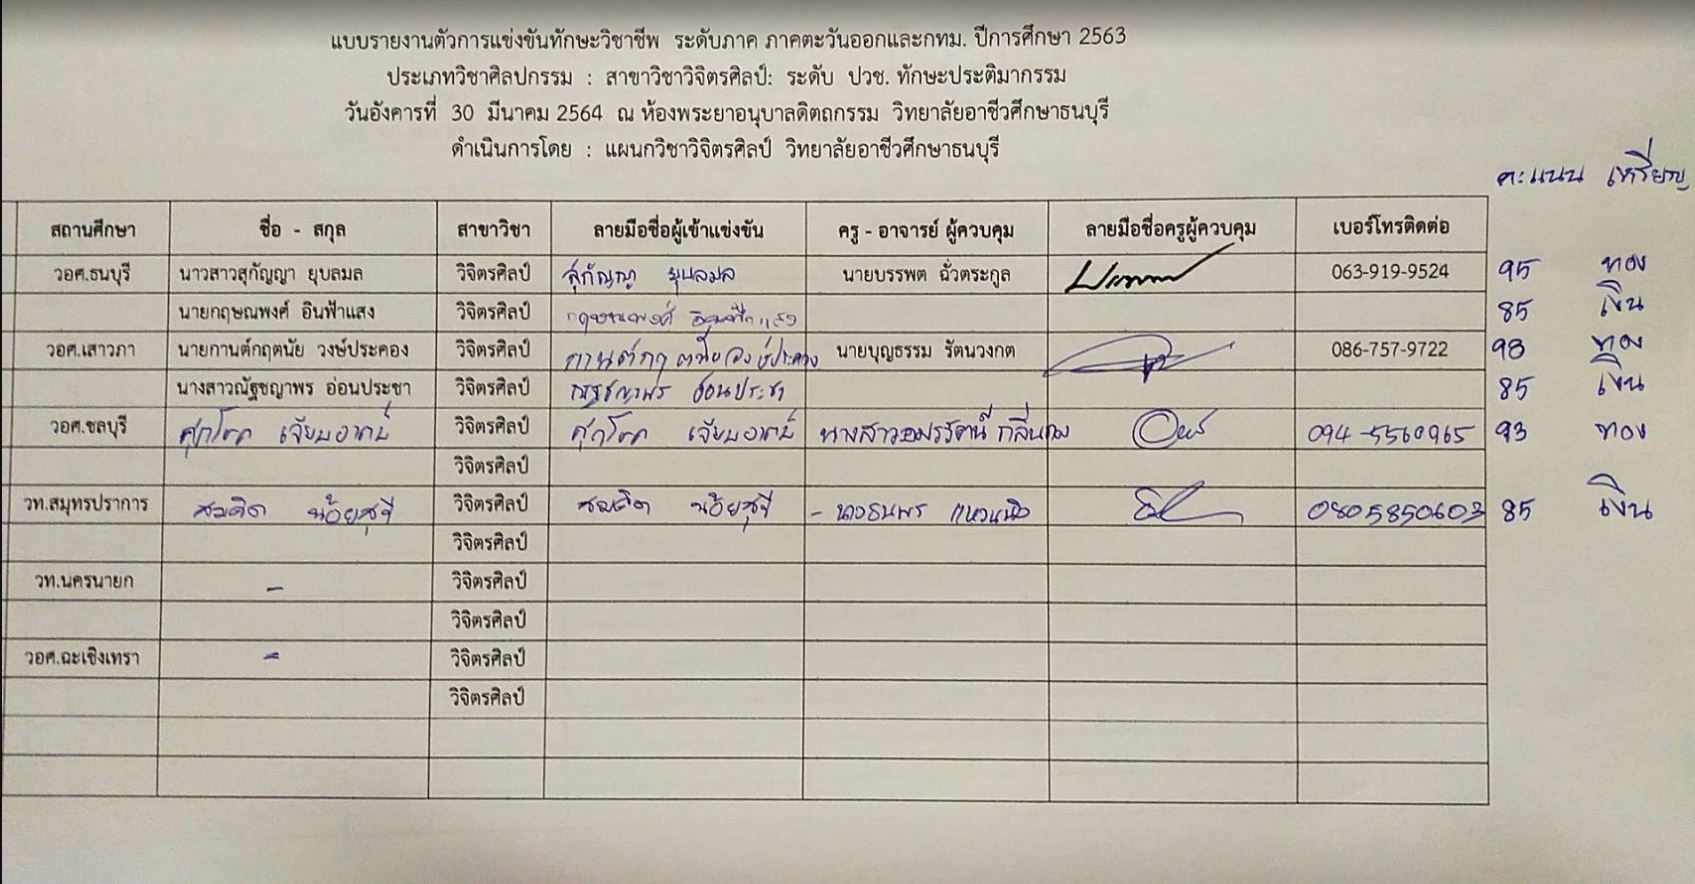 แบบรายงานตัวการแข่งขันทักษะวิชาชีพ ระดับภาค ภาคตะวันออกและกทม. ปีการศึกษา 2563
ประเภทวิชาศิลปกรรม : สาขาวิชาวิจิตรศิลป์: ระดับ ปวช. ทักษะประติมากรรม
วันอังคารที่ 30 มีนาคม 2564 ณ ห้องพระยาอนุบาลดิตถกรรม วิทยาลัยอาชีวศึกษาธนบุรี
ดำเนินการโดย : แผนกวิชาวิจิตรศิลป์ วิทยาลัยอาชีวศึกษาธนบุรี
คะแนน เหรียญ
สถานศึกษา ชื่อ - สกุล สาขาวิชา ลายมือชื่อผู้เข้าแข่งขัน ครู - อาจารย์ ผู้ควบคุม ลายมือชื่อครูผู้ควบคุม เบอร์โทรติดต่อ
วอศ.ธนบุรี นาวสาวสุกัญญา ยุบลมล วิจิตรศิลป์ สุกัญญา ยุบลมล นายบรรพต ฉั่วตระกูล 063-919-9524 95 ทอง
นายกฤษณพงศ์ อินฟ้าแสง วิจิตรศิลป์ กฤษณพงศ์ อินฟ้าแสง 85 เงิน
วอศ.เสาวภา นายกานต์กฤตนัย วงษ์ประคอง วิจิตรศิลป์ กานต์กฤตนัย วงษ์ประคอง นายบุญธรรม รัตนวงกต 086-757-9722 93 ทอง
นางสาวณัฐชญาพร อ่อนประชา วิจิตรศิลป์ ณัฐชญาพร อ่อนประชา 85 เงิน
วอศ.ชลบุรี วิจิตรศิลป์ นางสาวอมรรัตน์ 094-5560965 93 ทอง
วิจิตรศิลป์
วท.สมุทรปราการ สมคิด น้อยสุขี วิจิตรศิลป์ สมคิด น้อยสุขี - นางธนพร 0805850603 85 เงิน
วิจิตรศิลป์
วท.นครนายก - วิจิตรศิลป์
วิจิตรศิลป์
วอศ.ฉะเชิงเทรา - วิจิตรศิลป์
วิจิตรศิลป์